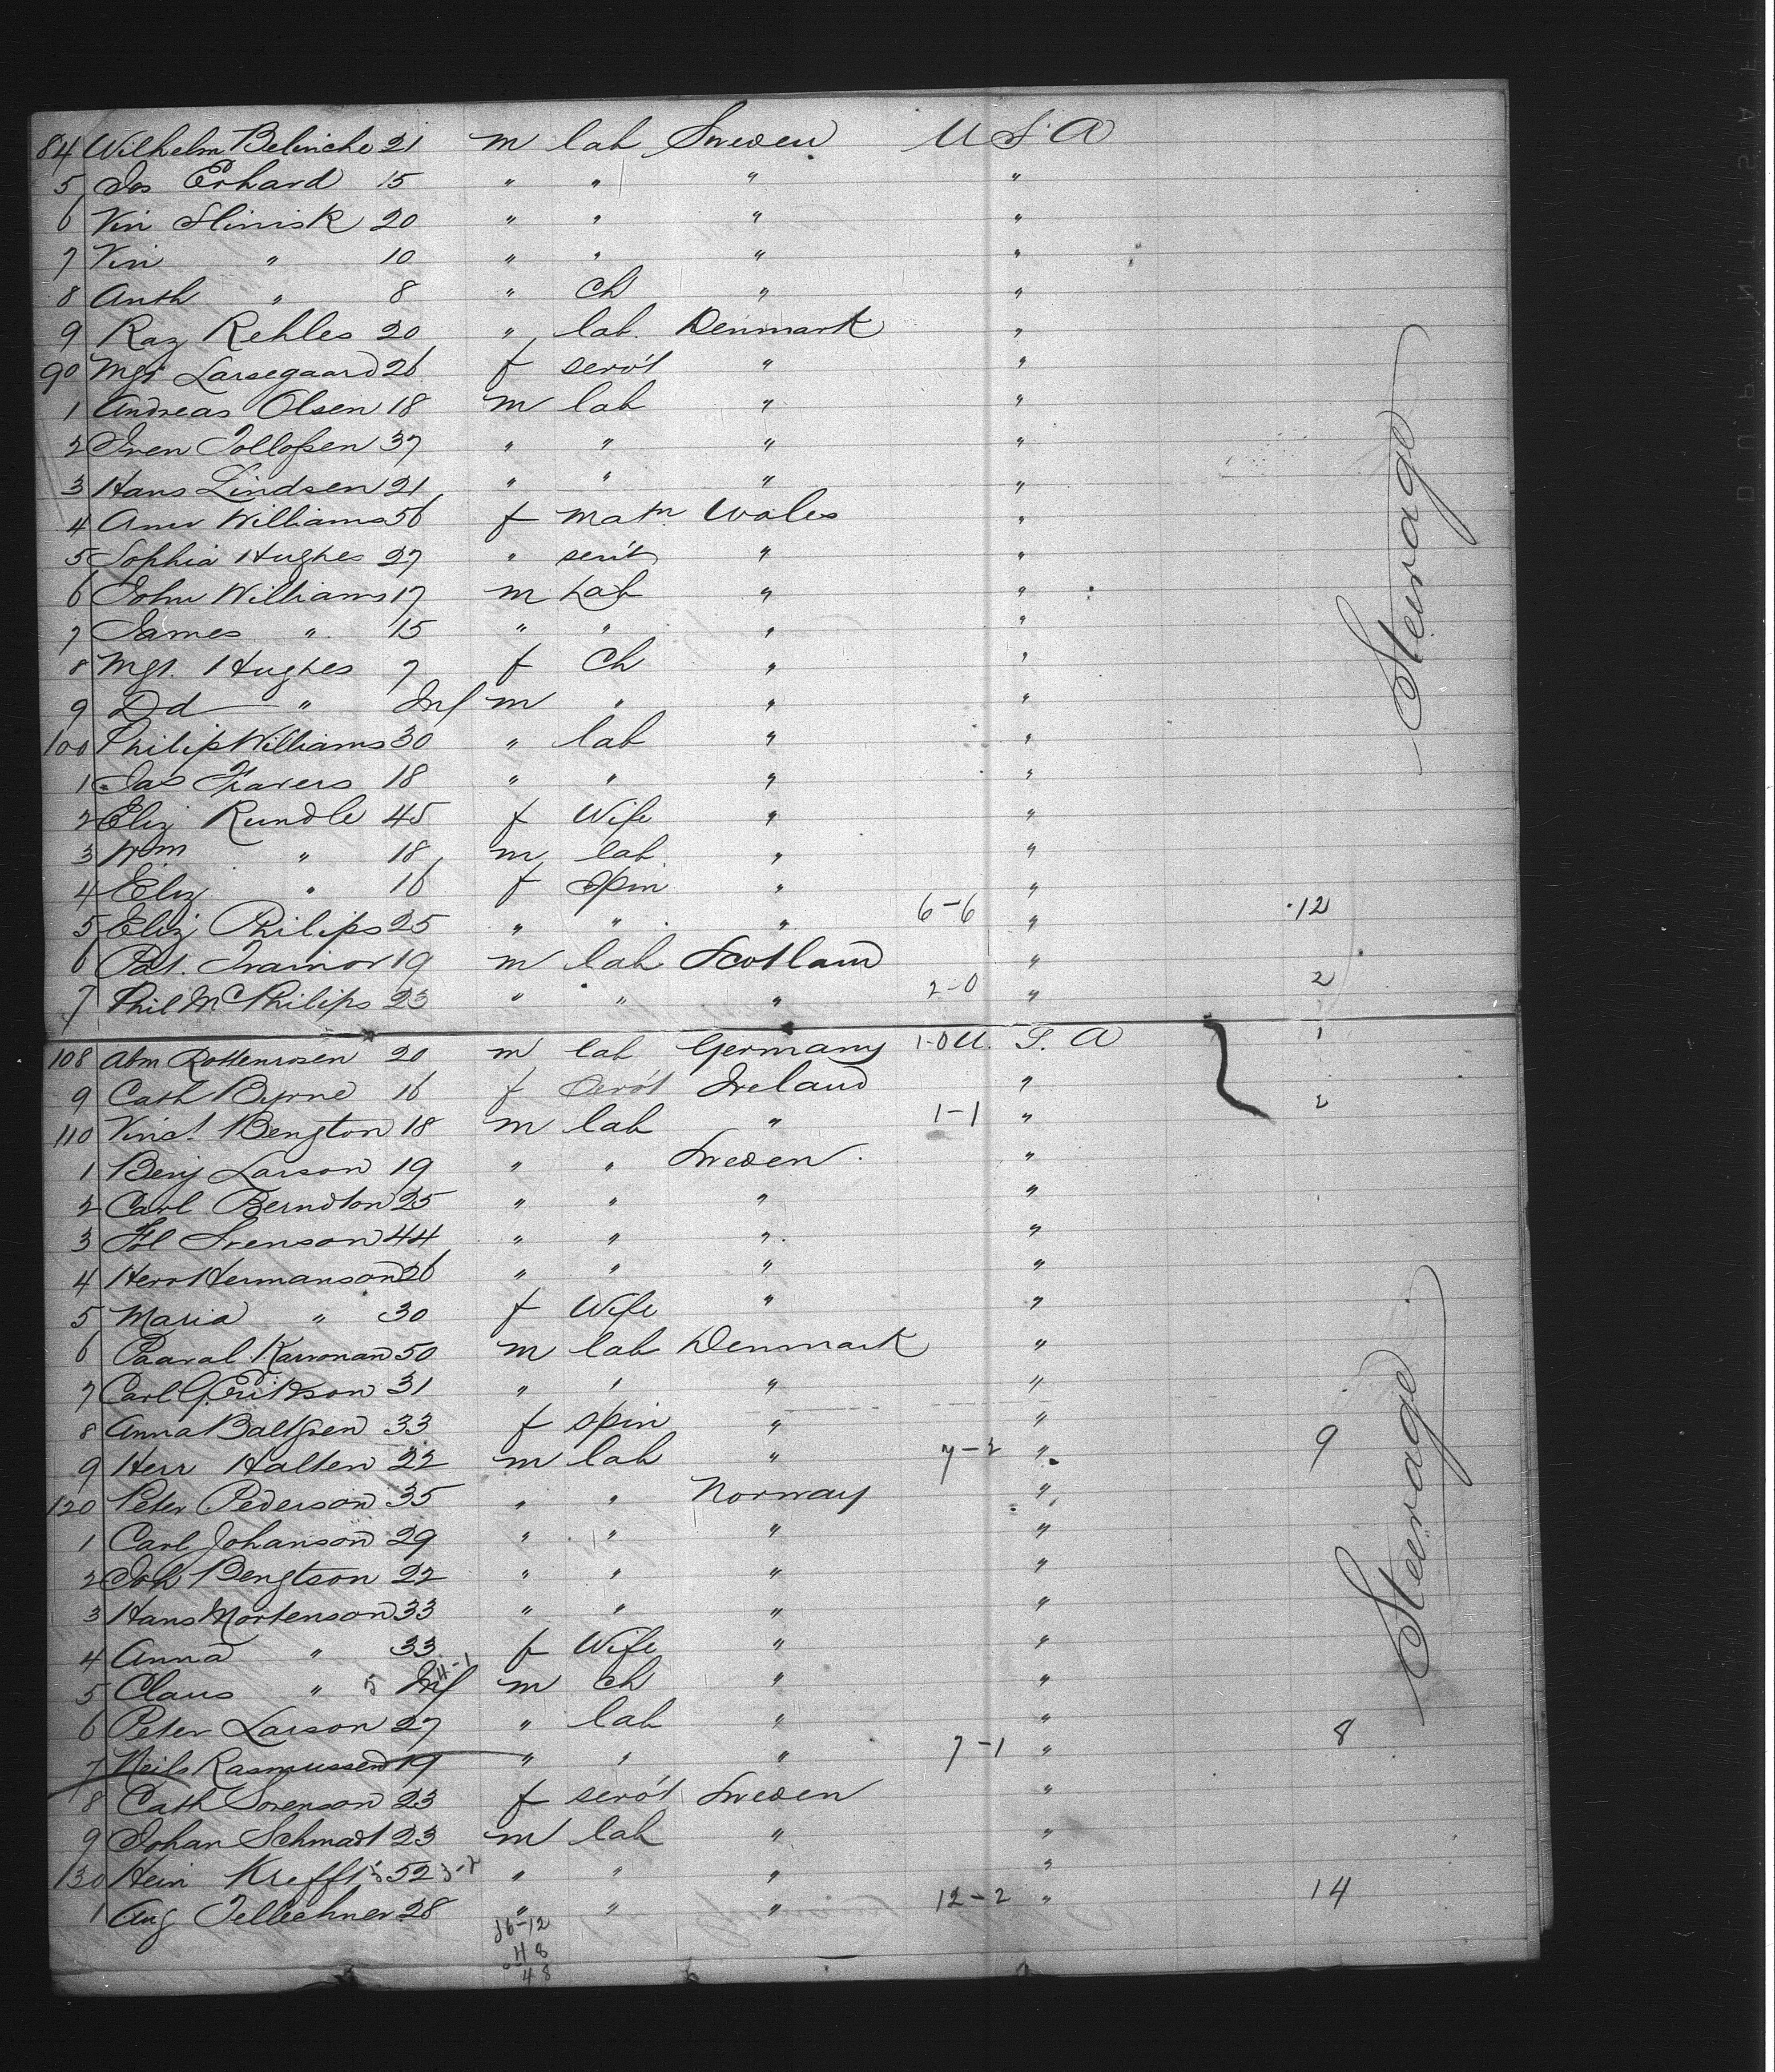 84 Wilhelm Belinche 21 m lab Sweden U S A
5 Jos Erhard 15 " " " "
6 Vin Slinisk 20 " " " "
7 Vin " 10 " " " "
8 Anth " 8 " Ch " "
9 Raz Rehles 20 " lab. Denmark "
90 Mgt Larsegaard 26 f serv't " "
1 Andreas Olsen 18 m lab " "
2 Sven Tollofsen 37 " " " "
3 Hans Lindsen 21 " " " "
4 Ann Williams 56 f matn Wales "
5 Sophia Hughes 27 " serv't " "
6 John Williams 17 m Lab " "
7 James " 15 " " " "
8 Mgt. Hughes 7 f Ch " "
9 Dd " Inf m " " "
100 Philip Williams 30 " lab " "
1 Jas Travers 18 " " " "
2 Eliz Rundle 45 f Wife " "
3 Wm " 18 m lab " "
4 Eliz " 16 f Spin " "
5 Eliz Philips 25 " " " 6-6 " 12
6 Pat. Trainor 19 m lab Scotland "
7 Phil McPhilips 23 " " " 2-0 " 2
Steerage
108 Abm Rottenrosen 20 m lab Germany 1-0 U. S. A 1
9 Cath Byrne 16 f Serv't Ireland "
110 Vinct. Bengton 18 m lab " 1-1 " 2
1 Benj Larson 19 " " Sweden "
2 Carl Berndton 25 " " " "
3 Svenson 44 " " " "
4 Herr Hermanson 26 " " " "
5 Maria " 30 f Wife " "
6 Paaval Karvonan 50 m lab Denmark "
7 Carl G. Erikson 31 " " " "
8 Anna Baltzen 33 f Spin " "
9 Herr Halten 22 m lab " 7-2 " 9
120 Peter Pederson 35 " " Norway "
1 Carl Johanson 29 " " " "
2 Joh Bengtson 22 " " " "
3 Hans Mortenson 33 " " " "
4 Anna " 33 f Wife " "
5 Claus " 5 Inf 11-1 m ch " "
6 Peter Larson 27 " lab " "
7 Neils Rasmussen 19 " " " 7-1 " 8
8 Cath Sorenson 23 f serv't Sweden "
9 Johan Schmadt 23 m lab " "
130 Hein Krefft 52 3-2 " " " "
1 Aug Tellechner 28 " " " 12-2 " 14
36-12
48
48
Steerage